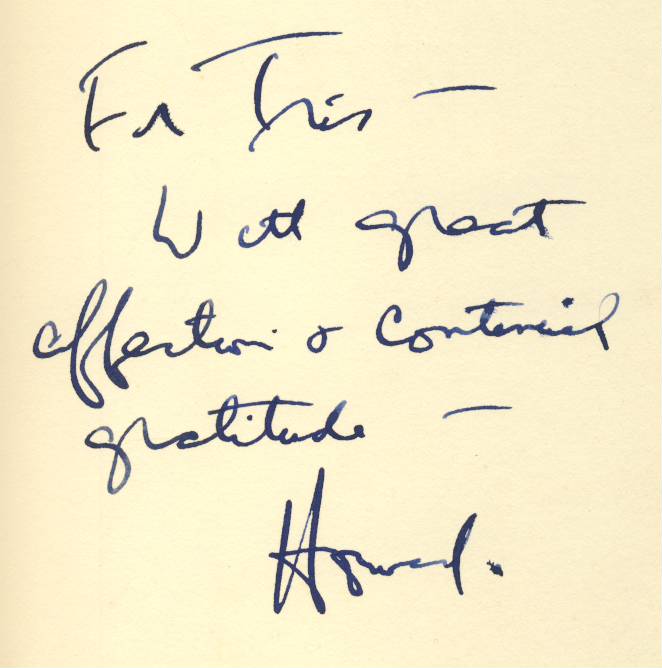 For Iris —
With great
affection & continued
gratitude —
Howard.